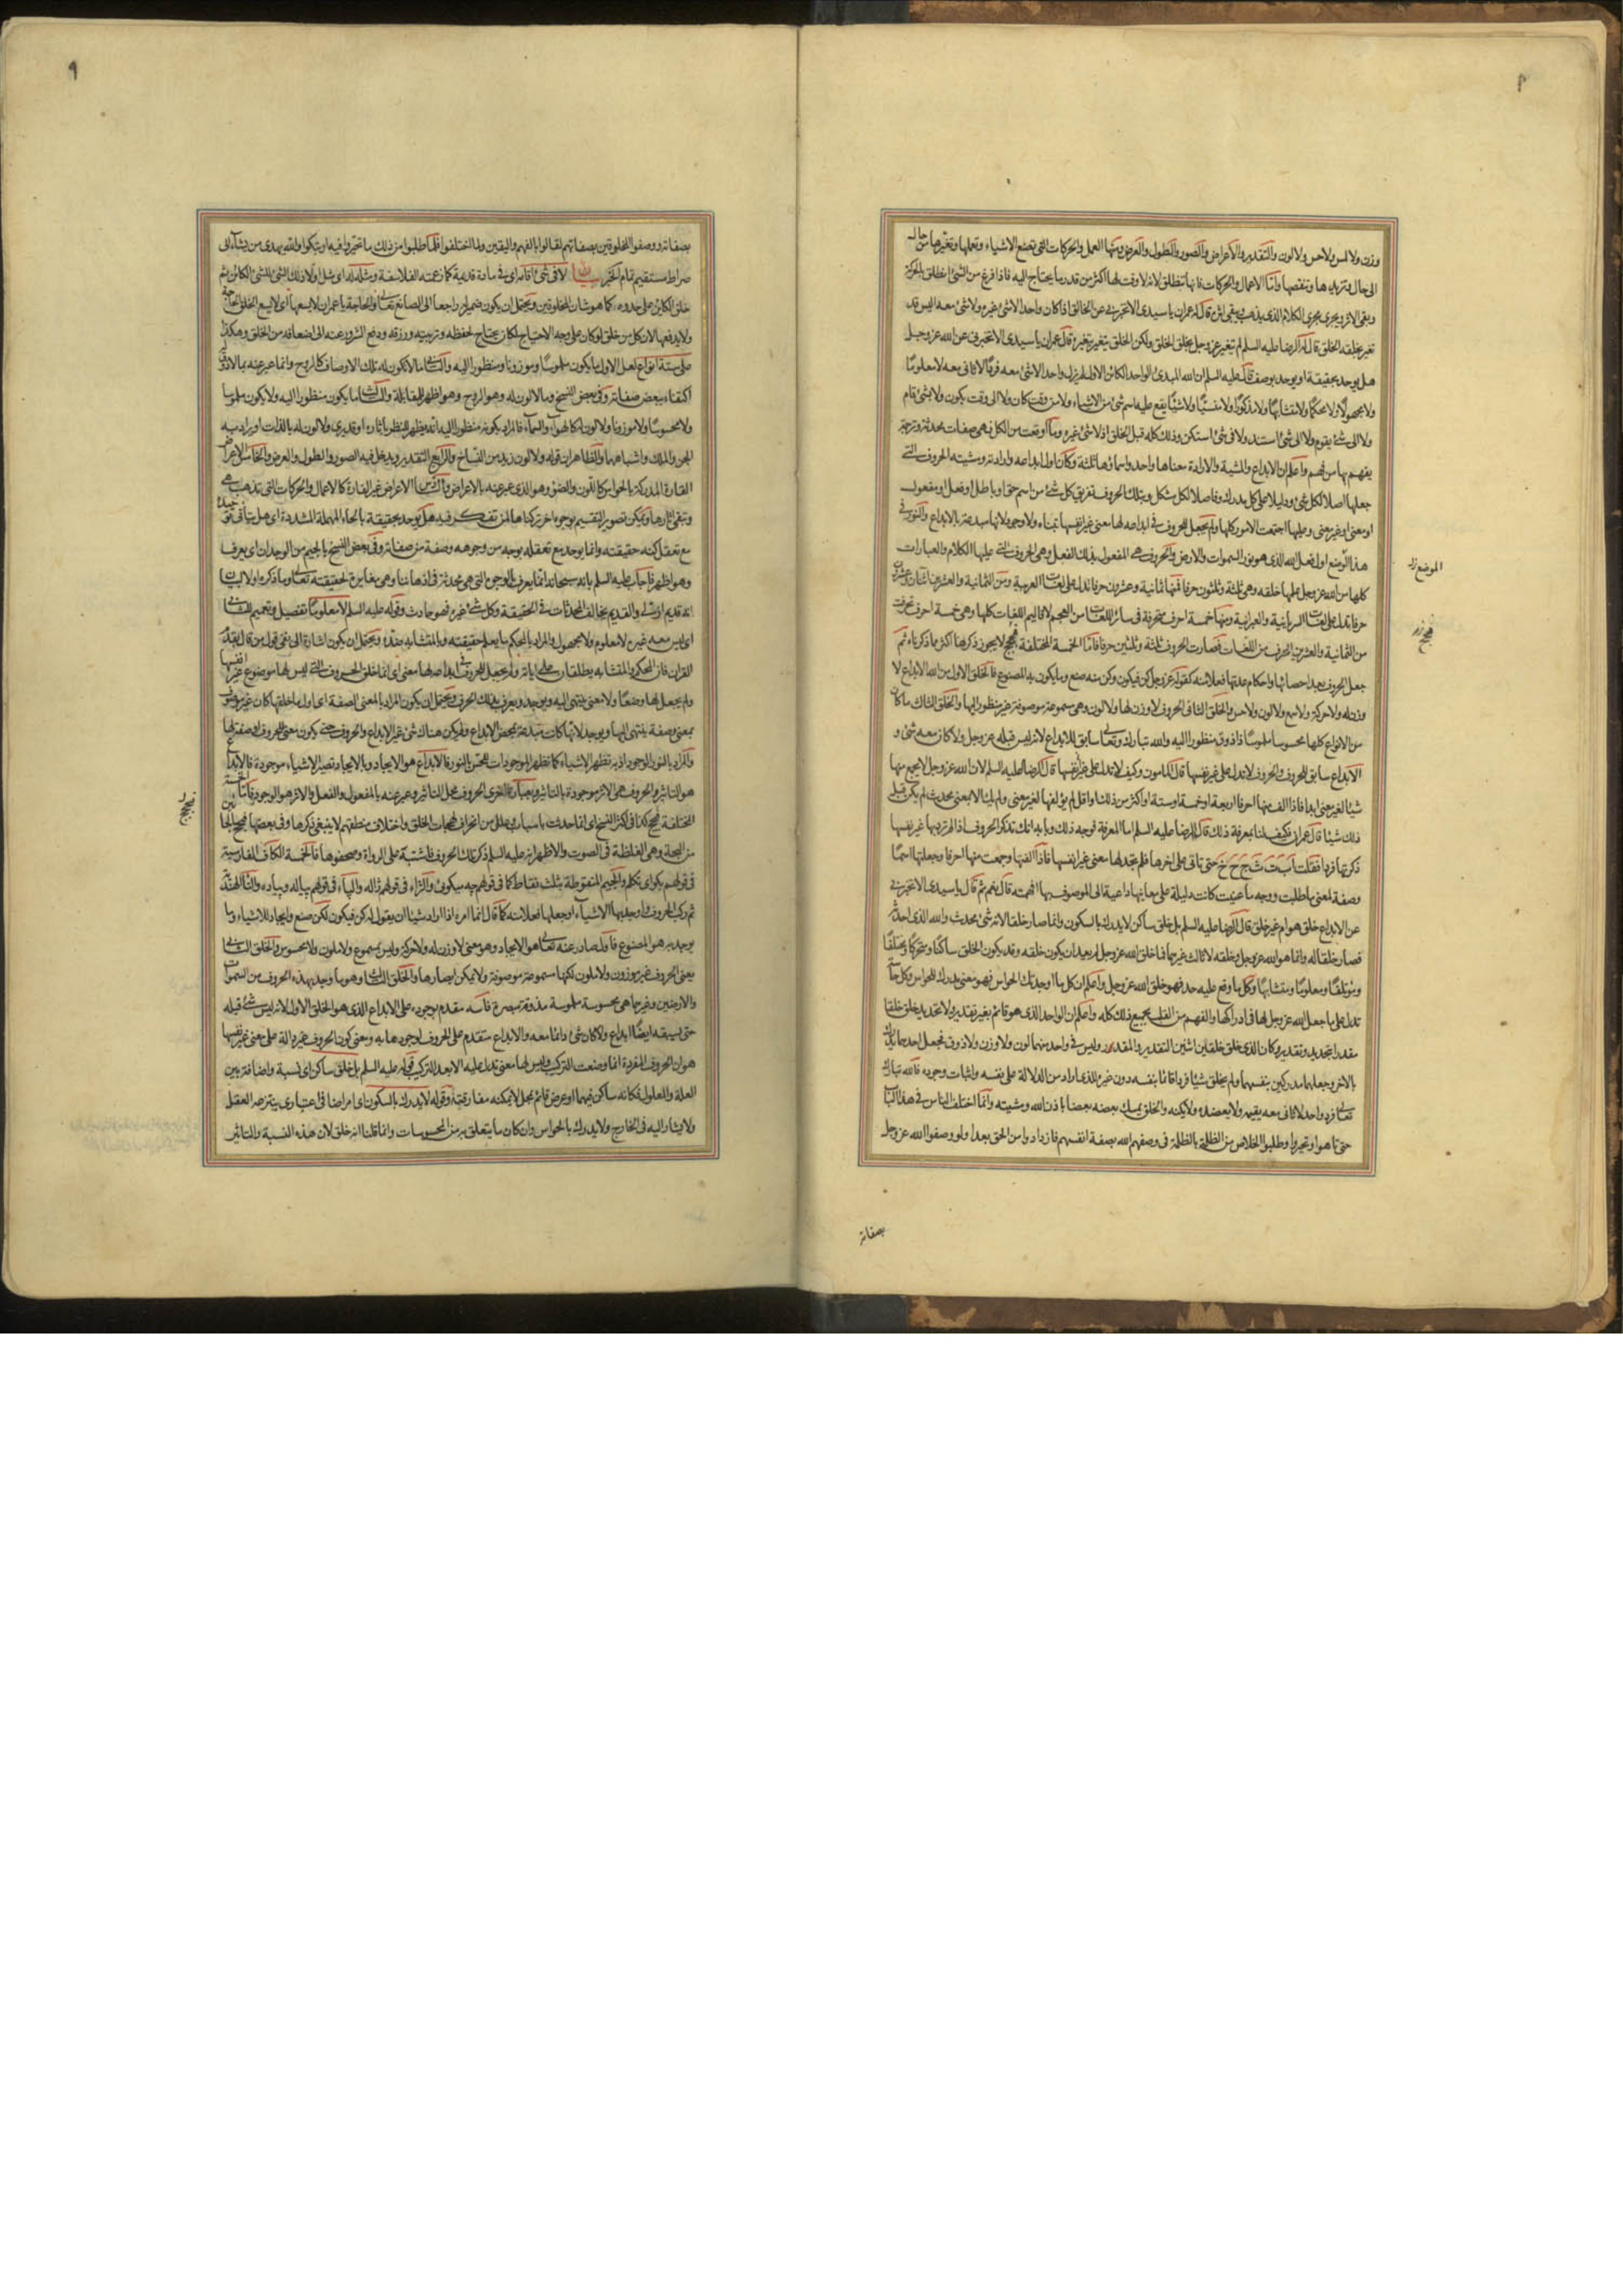 وزن ولا لمس ولا حس ولا لون والتقدير والاعراض والصور والطول والعرض ومنها العمل والحركات التى تصنع الاشياء وتعملها وتغيرها من حال
الى حال وتزيدها وتنقصها واما الاعمال والحركات فانها تنطلق لانه لا وقت لها اكثر من قدر ما يحتاج اليه فاذا فرغ من الشئ انطلق بالحركة
وبقى الاثر ويجرى مجرى الكلام الذى يذهب ويبقى اثره قال له عمران يا سيدى الا تخبرنى عن الخالق اذا كان واحدا لا شئ غيره ولا شئ معه اليس قد
تغير بخلقه الخلق قال له الرضا عليه السلم لم يتغير عز وجل بخلق الخلق ولكن الخلق يتغير بتغيره قال عمران يا سيدى الا تخبرنى عن الله عز وجل
هل يوحد بحقيقة او يوحد بوصف قال عليه السلم ان الله المبدئ الواحد الكائن الاول لم يزل واحدا لا شئ معه فردا لا ثانى معه لا معلوما
ولا مجهولا ولا محكما ولا متشابها ولا مذكورا ولا منسيا ولا شيئا يقع عليه اسم شئ من الاشياء ولا من وقت كان ولا الى وقت يكون ولا بشئ قام
ولا الى شئ يقوم ولا الى شئ استند ولا فى شئ استكن وذلك كله قبل الخلق اذ لا شئ غيره وما اوقعت من الكل فهى صفات محدثة وترجمة
يفهم بها من فهم واعلم ان الابداع والمشية والارادة معناها واحد واسماؤها ثلثة وكان اول ابداعه وارادته ومشيته الحروف التى
جعلها اصلا لكل شئ ودليلا على كل مدرك وفاصلا لكل مشكل وبتلك الحروف تفريق كل شئ من اسم حق او باطل او فعل او مفعول
او معنى او غير معنى وعليها اجتمعت الامور كلها ولم يجعل للحروف فى ابداعه لها معنى غير انفسها تتناه ولا وجود لانها مبدعة بالابداع والنور فى
هذا الوضع اول فعل الله الذى هو نور السموات والارض والحروف هى المفعول بذلك الفعل وهى الحروف التى عليها الكلام والعبارات
الموضع
كلها من الله عز وجل علمها خلقه وهى ثلثة وثلثون حرفا فمنها ثمانية وعشرون حرفا تدل على لغات العربية ومن الثمانية والعشرين اثنان وعشرون
حرفا تدل على لغات السريانية والعبرانية ومنها خمسة احرف متحرفة فى سائر اللغات من العجم لاقاليم اللغات كلها وهى خمسة احرف تحرفت
من الثمانية والعشرين الحرف من اللغات فصارت الحروف ثلثة وثلثين حرفا فاما الخمسة المختلفة لا يجوز ذكرها اكثر مما ذكرناه ثم
جعل الحروف بعد احصائها واحكام عدتها فعلا منه كقوله عز وجل كن فيكون وكن منه صنع وما يكون به المصنوع فالخلق الاول من الله الابداع لا
وزن له ولا حركة ولا سمع ولا لون ولا حس والخلق الثانى الحروف لا وزن لها ولا لون وهى مسموعة موصوفة غير منظور اليها والخلق الثالث ما كان
من الانواع كلها محسوسا ملموسا ذا ذوق منظورا اليه والله تبارك وتعالى سابق للابداع لانه ليس قبله عز وجل ولا كان معه شئ و
الابداع سابق للحروف والحروف لا تدل على غير نفسها قال المامون وكيف لا تدل على غير نفسها قال الرضا عليه السلم لان الله عز وجل لا يجمع منها
شيئا لغير معنى ابدا فاذا الف منها احرفا اربعة او خمسة او ستة او اكثر من ذلك او اقل لم يؤلفها لغير معنى ولم يك الا لمعنى محدث لم يكن قبل
ذلك شيئا قال عمران فكيف لنا بمعرفة ذلك قال الرضا عليه السلم اما المعرفة فوجه ذلك وبابه انك تذكر الحروف اذا لم ترد بها غير نفسها
ذكرتها فردا فقلت ا ب ت ث ج ح خ حتى تاتى على اخرها فلم تجد لها معنى غير انفسها فاذا الفتها وجمعت منها احرفا وجعلتها اسما
وصفة لمعنى ما طلبت ووجه ما عنيت كانت دليلة على معانيها داعية الى الموصوف بها افهمته قال نعم ثم قال يا سيدى الا تخبرنى
عن الابداع خلق هو ام غير خلق قال الرضا عليه السلم بل خلق ساكن لا يدرك بالسكون وانما صار خلقا لانه شئ محدث والله الذى احدثه
فصار خلقا له وانما هو الله عز وجل وخلقه لا ثالث غيرهما فما خلق الله عز وجل لم يعد ان يكون خلقه وقد يكون الخلق ساكنا ومتحركا ومختلفا
ومؤتلفا ومعلوما ومتشابها وكل ما وقع عليه حد فهو خلق الله عز وجل واعلم ان كل ما اوجدتك الحواس فهو معنى مدرك للحواس وكل حاسة
تدل على ما جعل الله عز وجل لها فى ادراكها والفهم من القلب بجميع ذلك كله واعلم ان الواحد الذى هو قائم بغير تقدير ولا تحديد خلق خلقا
مقدرا بتحديد وتقدير وكان الذى خلق خلقين اثنين التقدير والمقدر وليس فى واحد منهما لون ولا وزن ولا ذوق فجعل احدهما يدرك
بالاخر وجعلهما مدركين بنفسهما ولم يخلق شيئا فردا قائما بنفسه دون غيره للذى اراد من الدلالة على نفسه واثبات وجوده فالله تبارك
وتعالى فرد واحد لا ثانى معه يقيمه ولا يعضده ولا يكنه والخلق يمسك بعضه بعضا باذن الله ومشيته وانما اختلف الناس فى هذا الباب
حتى تاهوا وتحيروا وطلبوا الخلاص من الظلمة بالظلمة فى وصفهم الله بصفة انفسهم فازدادوا من الحق بعدا ولو وصفوا الله عز وجل
بصفاته
٩
بصفاته ووصفوا المخلوقين بصفاتهم لقالوا بالفهم واليقين ولما اختلفوا فلما طلبوا من ذلك ما تحيروا فيه ارتبكوا والله يهدى من يشاء الى
صراط مستقيم تمام الخبر بيان لا فى شئ اقامه اى فى مادة قديمة كما زعمته الفلاسفة ومثله له اى مثل اولا ذلك الشئ للشئ الكائن ثم
خلق الكائن على حذوه كما هو شان المخلوقين ويحتمل ان يكون ضمير له راجعا الى الصانع تعالى والحاجة يا عمران لا يسعها اى لا يسع الخلق الحاجة
ولا يدفعها لان كل من خلق لو كان على وجه الاحتياج لكان يحتاج لحفظه وتربيته ورزقه ودفع الشرور عنه الى اضعافه من الخلق وهكذا
على ستة انواع لعل الاول ما يكون ملموسا وموزونا ومنظورا اليه والثانى ما لا تكون له تلك الاوصاف كالروح وانما عبر عنه بما لا ذوق له
اكتفاء ببعض صفاته وفى بعض النسخ وما لا لون له وهو الروح وهو اظهر للمقابلة والثالث ما يكون منظورا اليه ولا يكون ملموسا
ولا محسوسا ولا موزونا ولا لون له كالهواء والسماء فالمراد بكونه منظورا اليه انه يظهر للنظر باثاره او قد يرى ولا لون له بالذات او يراد به
الجن والملك واشباههما والظاهر ان قوله ولا لون زيد من النساخ والرابع التقدير ويدخل فيه الصور والطول والعرض والخامس الاعراض
القارة المدركة بالحواس كاللون والضوء وهو الذى عبر عنه بالاعراض والسادس الاعراض غير القارة كالاعمال والحركات التى تذهب هى
وتبقى اثارها ويمكن تصوير التقسيم بوجوه اخر تركناها لمن تفكر فيه هل يوحد بحقيقة بالحاء المهملة المشددة اى هل يتاتى توحيده
مع تعقل كنه حقيقته وانما يوحد مع تعقله بوجه من وجوهه وصفة من صفاته وفى بعض النسخ بالجيم من الوجدان اى يعرف
وهو اظهر فاجاب عليه السلم بانه سبحانه انما يعرف بالوجوه التى هى محدثة فى اذهاننا وهى مغايرة لحقيقته تعالى وما ذكره اولا لبيان
انه قديم ازلى والقديم يخالف المحدثات فى الحقيقة وكل شئ غيره فهو حادث وقوله عليه السلم لا معلوما تفصيل وتعميم للثانى
اى ليس معه غيره لا معلوم ولا مجهول والمراد بالمحكم ما يعلم حقيقته وبالمتشابه ضده ويحتمل ان يكون اشارة الى نفى قول من قال بقدم
القران فان المحكم والمتشابه يطلقان على اياته ولم يجعل للحروف فى ابداعه لها معنى اى انما خلق الحروف التى ليس لها موضوع غير انفسها
ولم يجعل لها وضعا ولا معنى ينتهى اليه ويوجد ويعرف بذلك الحرف ويحتمل ان يكون المراد بالمعنى الصفة اى اول ما خلقها كان غير موصوف
بمعنى وصفة ينتهى اليها ويوجد لانها كانت مبدعة بمحض الابداع ولم يكن هناك شئ غير الابداع والحروف حتى يكون معنى للحروف او صفة لها
والمراد بالنور الوجود اذ به تظهر الاشياء كما تظهر الموجودات للحس بالنور فالابداع هو الايجاد وبالايجاد تصير الاشياء موجودة فالابداع
هو التاثير والحروف هى الاثر موجودة بالتاثير وبعبارة اخرى الحروف محل التاثير وعبر عنه بالمفعول والفعل والاثر هو الوجود فاما الخمسة
المختلفة كذا فى اكثر النسخ اى انما حدثت باسباب وعلل من انحراف لهجات الخلق واختلاف منطقهم لا ينبغى ذكرها وفى بعضها
من البحة وهى الغلظة فى الصوت والاظهر انه عليه السلم ذكر تلك الحروف فاشتبه على الرواة وصحفوها فالخمسة الكاف الفارسية
فى قولهم بكو اى تكلم والجيم المنقوطة بثلث نقاط كما فى قولهم چه ميكوئى والزاء فى قولهم ژاله والباء فى قولهم پياله وپياده والتاء الهندية
ثم ركب الحروف واوجد بها الاشياء وجعلها فعلا منه كما قال انما امره اذا اراد شيئا ان يقول له كن فيكون فكن صنع وايجاد للاشياء وما
يوجد به هو المصنوع فاول صادر عنه تعالى هو الايجاد وهو معنى لا وزن له ولا حركة وليس بمسموع ولا ملون ولا محسوس والخلق الثانى
يعنى الحروف غير موزون ولا ملون لكنها مسموعة موصوفة ولا يمكن ابصارها والخلق الثالث وهو ما وجد بهذه الحروف من السموات
والارضين وغيرهما هى محسوسة ملموسة مذوقة مبصرة فالله مقدم بوجوده على الابداع الذى هو الخلق الاول لانه ليس شئ قبله
حتى يسبقه ايضا ابداع ولا كان شئ دائما معه والابداع متقدم على الحروف لوجودها به ومعنى كون الحروف غير دالة على معنى غير نفسها
هو ان الحروف المفردة انما وضعت للتركيب وليس لها معنى تدل عليه الا بعد التركيب قوله عليه السلم بل خلق ساكن اى نسبة واضافة بين
العلة والمعلول فكانه ساكن فيهما او عرض قائم بمحل لا يمكنه مفارقته وقوله لا يدرك بالسكون اى امر اضافى اعتبارى ينتزعه العقل
ولا يشار اليه فى الخارج ولا يدرك بالحواس وان كان ما يتعلق به من المحسوسات وانما قلنا انه خلق لان هذه النسبة والتاثير